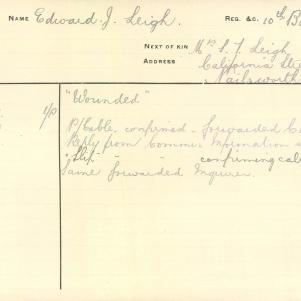 NAME Edward. J. Leigh. REG. &C. 10th B
NEXT OF KIN Mrs S. J. Leigh
ADDRESS California Str
Nailsworth
"Wounded"
P/Cable. confirmed - forwarded
Reply from Commn. Information
"Slip" - - confirming cab
Same forwarded Enquirer.